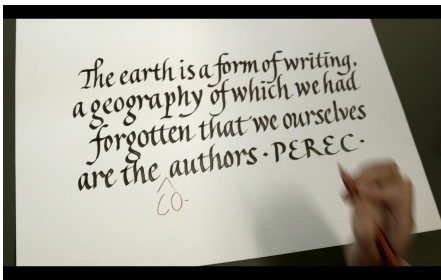 The earth is a form of writing.
a geography of which we had
forgotten that we ourselves
are the authors · PEREC ·
co-